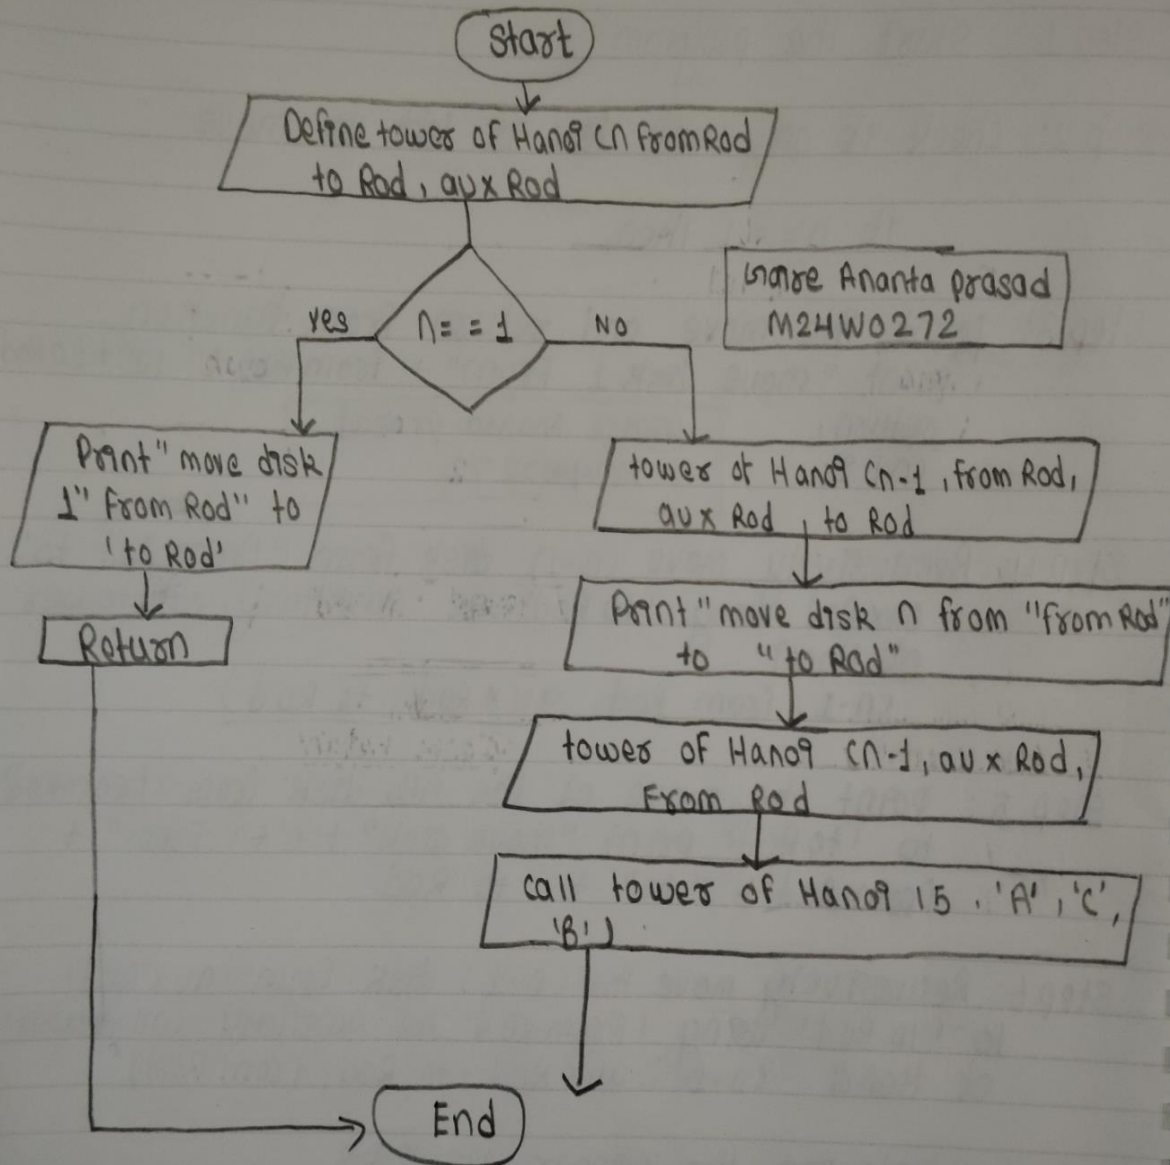 Start
Define tower of Hanoi (n from Rod
to Rod, aux Rod
n==1
yes
NO
Ananta prasad
M24W0272
Print "move disk
1" From Rod" to
'to Rod'
Return
tower of Hanoi (n-1, from Rod,
aux Rod, to Rod
Print "move disk n from "from Rod"
to "to Rod"
tower of Hanoi (n-1, aux Rod,
From Rod
call tower of Hanoi (5, 'A', 'C',
'B')
End